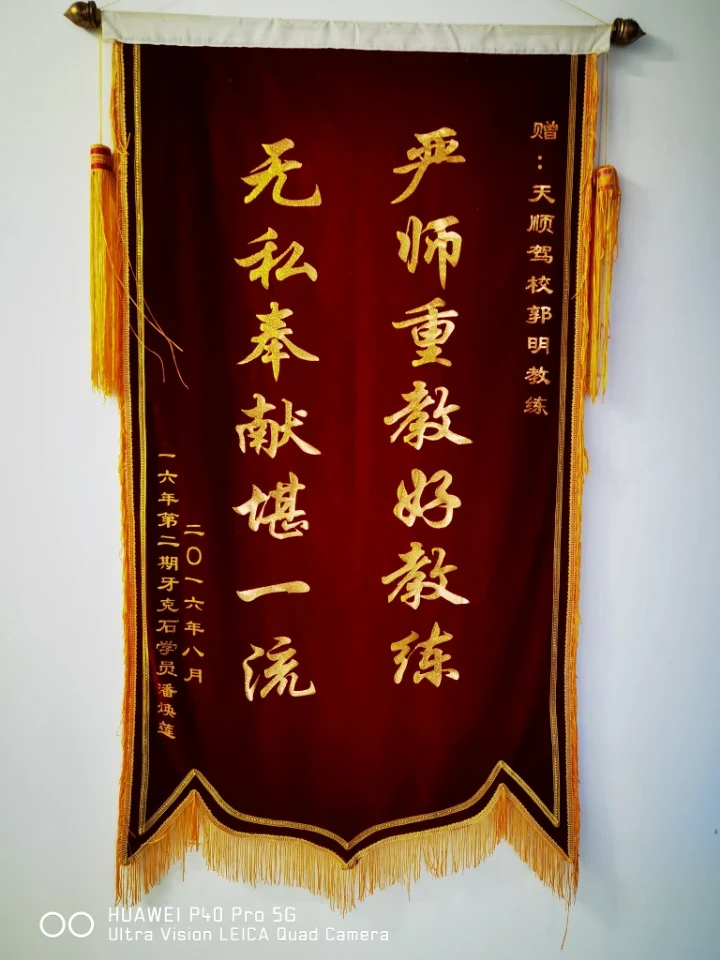 赠：天顺驾校郭明教练
严师重教好教练
无私奉献堪一流
二〇一六年八月
一六年第二期牙克石学员潘焕莲
HUAWEI P40 Pro 5G
Ultra Vision LEICA Quad Camera